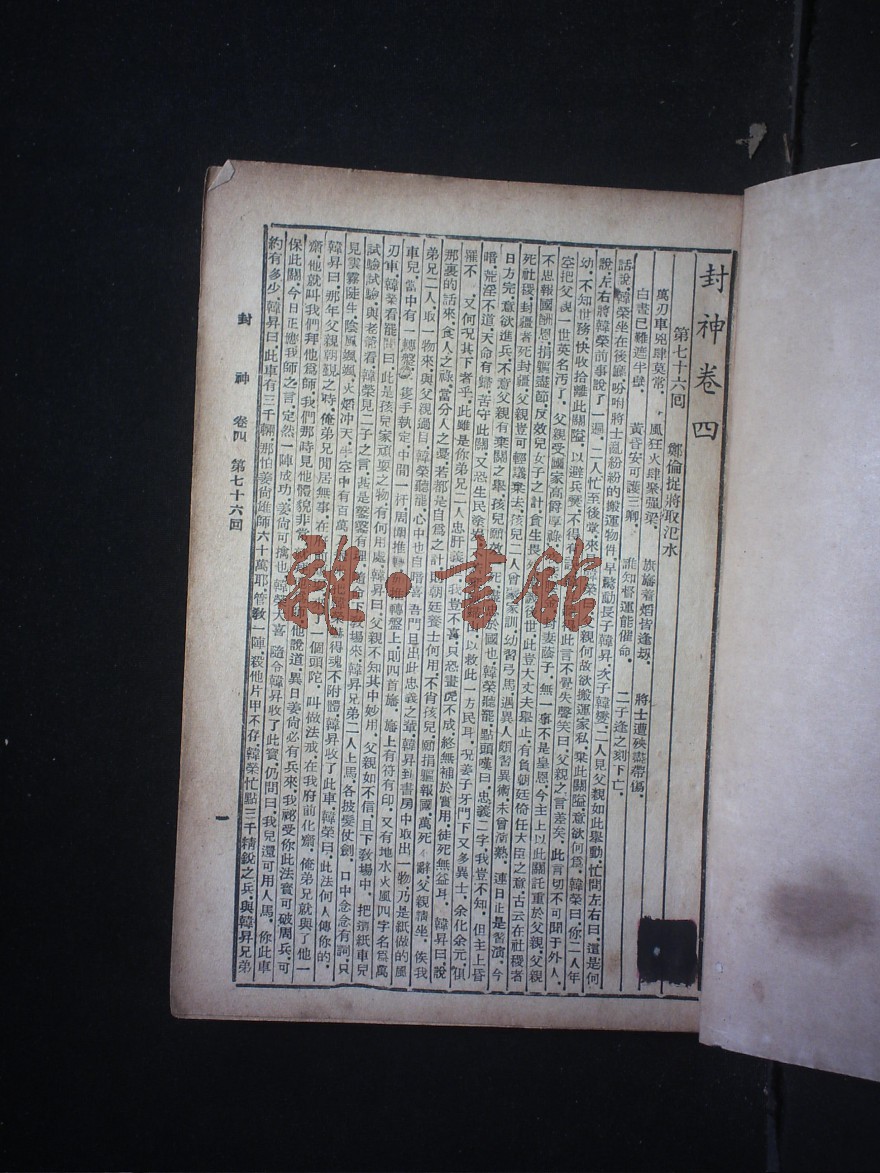 封神卷四
第七十六回　鄭倫捉將取汜水
萬刃車兇肆莫當．風狂火肆聚強梁．旗旛着焰皆逢刼．將士遭殃盡帶傷．
白晝已難遮半壁．黃昏安可護三鄉．誰知督運能催命．二子逢之刻下亡．
話說．韓榮坐在後廳吩咐將士亂紛紛的搬運物件．早驚動長子韓昇．次子韓變．二人見父親如此舉動．忙問左右曰．這是何
說．左右將韓榮前事說了一遍．二人忙至後堂．來
親何故欲搬運家私．棄此關隘．意欲何爲．韓榮曰．你二人年
幼．不知世務．快收拾離此關隘．以避兵燹．不得有
此言不覺失聲笑曰．父親之言差矣．此言切不可聞於外人．
空把父親一世英名汚了．父親受國家高爵厚祿
妻蔭子．無一事不是皇恩．今主上以此關託重於父親．父親
不思報國酬恩．捐軀盡節．反效兒女子之計．貪生
後世．此豈大丈夫舉止．有負朝廷倚任大臣之意．古云．在社稷者
死社稷．封疆者死封疆．父親豈可輕議棄去．孩兒
人曾
家訓．幼習弓馬．遇異人．頗習異術．未曾演熟．連日正是習演．今
日方完．意欲進兵．不意父親有棄關之舉．孩兒願
死
於國也．韓榮聽罷．點頭嘆曰．忠義二字．我豈不知．但主上昏
暗．荒淫不道．天命有歸．若守此關．又恐生民塗炭
以救此一方民耳．況姜子牙門下又多異士．余化．余元．俱
罹不　又何況其下者乎．此雖是你弟兄二人忠肝義
我豈不喜．只恐畫虎不成．終無補於實用．徒死無益耳．韓昇曰．說
那裏的話來．食人之祿．當分人之憂．若都是自爲之計．朝廷養士何用．不肖孩兒．願捐軀報國．萬死　辭．父親請坐．俟我
弟兄二人取一物來．與父親過目．韓榮聽罷．心中也自暗喜．吾門且出此忠義之輩．韓昇到書房中取出一物．乃是紙做的風
車兒．當中有一轉盤．一隻手執定中間一杆．周圍推轉
轉盤上．則四首旛．旛上有符有印．又有地水火風四字．名爲萬
刃車．韓榮看罷．問曰．此是孩兒家頑耍之物．有何用處．韓昇曰．父親不知其中妙用．父親如不信．且下敎場中．把這紙車兒
試驗試驗．與老爺看．韓榮見二子之言．甚是鑿鑿有理．隨
下敎場來．韓昇兄弟二人上馬．各披髮仗劍．口中念念有詞．只
見雲霧陡生．陰風颯颯．火焰冲天．半空中有百萬
韓榮
得魂不附體．韓昇收了此車．韓榮曰．此法何人傳你的．
韓昇曰．那年父親朝覲之時．俺弟兄閒居無事．在
一個頭陀．叫做法戒．在我府前化齋．俺弟兄就與了他一
齋．他就叫我們拜他爲師．我們那時見他體貌非常
他說道．異日姜尙必有兵來．我祕受你此法寶．可破周兵．可
保此關．今日正應我師之言．定然一陣成功．姜尙可擒也．韓榮大喜．隨令韓昇收了此寶．仍問曰．我兒還可用人馬．你此車
約有多少．韓昇曰．此車有三千輛．那怕姜尙雄師六十萬耶．管敎一陣殺他片甲不存．韓榮忙點三千精銳之兵．與韓昇兄弟
封神　卷四　第七十六回
一
雜·書館